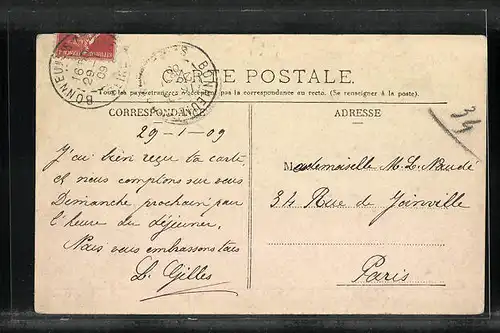 CARTE POSTALE.
Tous les pays étrangers n'acceptent pas la correspondance au recto. (Se renseigner à la poste.)
CORRESPONDANCE
ADRESSE
29-1-09
J'ai bien reçu ta carte
et nous comptons sur vous
Dimanche prochain pour
l'heure du déjeuner.
Nous vous embrassons tous
L. Gilles
Mademoiselle M. L. Naudé
34 Rue de Joinville
Paris
34
BONNEUIL
29
09